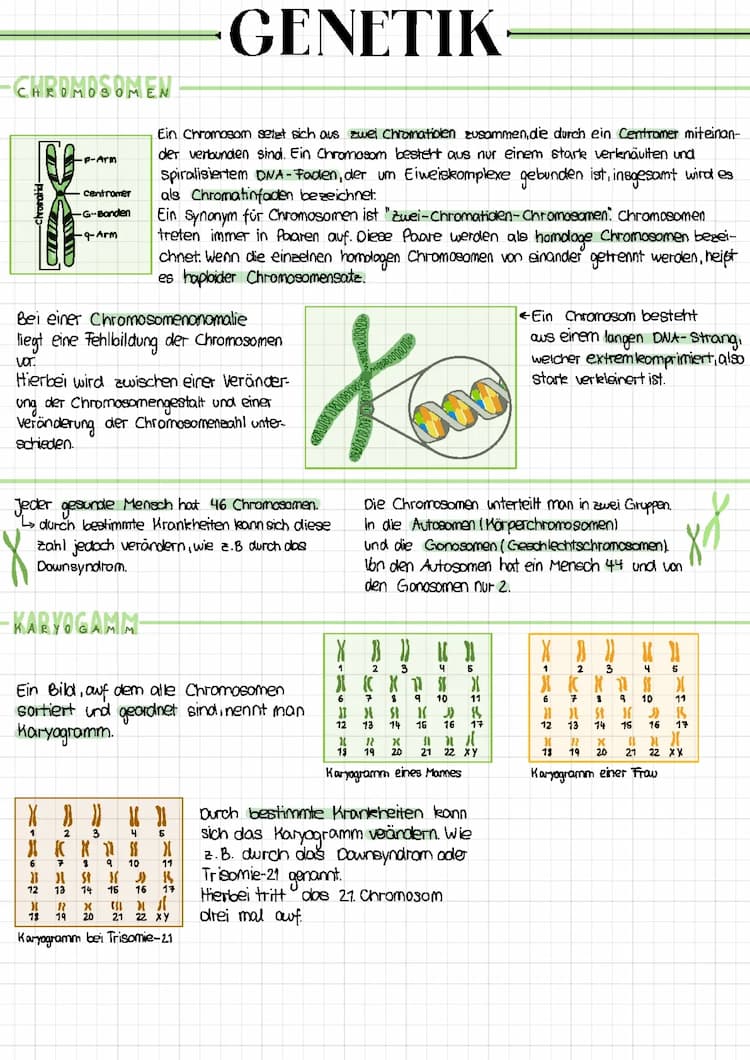 GENETIK
CHROMOSOMEN
CHROMOSOMEN
Ein Chromosom setzt sich aus zwei Chromatiden zusammen, die durch ein Centromer miteinan-
der verbunden sind. Ein Chromosom besteht aus nur einem stark verknäulten und
spiralisiertem DNA-Faden, der um Eiweiskomplexe gebunden ist, insgesamt wird es
als Chromatinfaden bezeichnet.
Ein Synonym für Chromosomen ist "Zwei-Chromatiden-Chromosomen". Chromosomen
treten immer in Paaren auf. Diese Paare werden als homologe Chromosomen bezei-
chnet. Wenn die einzelnen homologen Chromosomen von einander getrennt werden, heißt
es haploider Chromosomensatz.
Chromatid
p-Arm
Centromer
G-Banden
q-Arm
Bei einer Chromosomenanomalie
liegt eine Fehlbildung der Chromosomen
vor.
Hierbei wird zwischen einer Veränder-
ung der Chromosomengestalt und einer
Veränderung der Chromosomenzahl unter-
schieden.
←Ein Chromosom besteht
aus einem langen DNA-Strang,
welcher extrem komprimiert, also
stark verkleinert ist.
Jeder gesunde Mensch hat 46 Chromosomen.
↳ durch bestimmte Krankheiten kann sich diese
Zahl jedoch verändern, wie z.B durch das
Downsyndrom.
Die Chromosomen unterteilt man in zwei Gruppen.
In die Autosomen (Körperchromosomen)
und die Gonosomen (Geschlechtschromosomen).
Von den Autosomen hat ein Mensch 44 und von
den Gonosomen nur 2.
KARYOGAMM
KARYOGAMM
Ein Bild, auf dem alle Chromosomen
sortiert und geordnet sind, nennt man
Karyogramm.
1 2 3 4 5
6 7 8 9 10 11
12 13 14 15 16 17
18 19 20 21 22 XY
Karyogramm eines Mannes
1 2 3 4 5
6 7 8 9 10 11
12 13 14 15 16 17
18 19 20 21 22 XX
Karyogramm einer Frau
1 2 3 4 5
6 7 8 9 10 11
12 13 14 15 16 17
18 19 20 21 22 XY
Karyogramm bei Trisomie-21
Durch bestimmte Krankheiten kann
sich das Karyogramm verändern. Wie
z.B. durch das Downsyndrom oder
Trisomie-21 genannt.
Hierbei tritt das 21. Chromosom
drei mal auf.